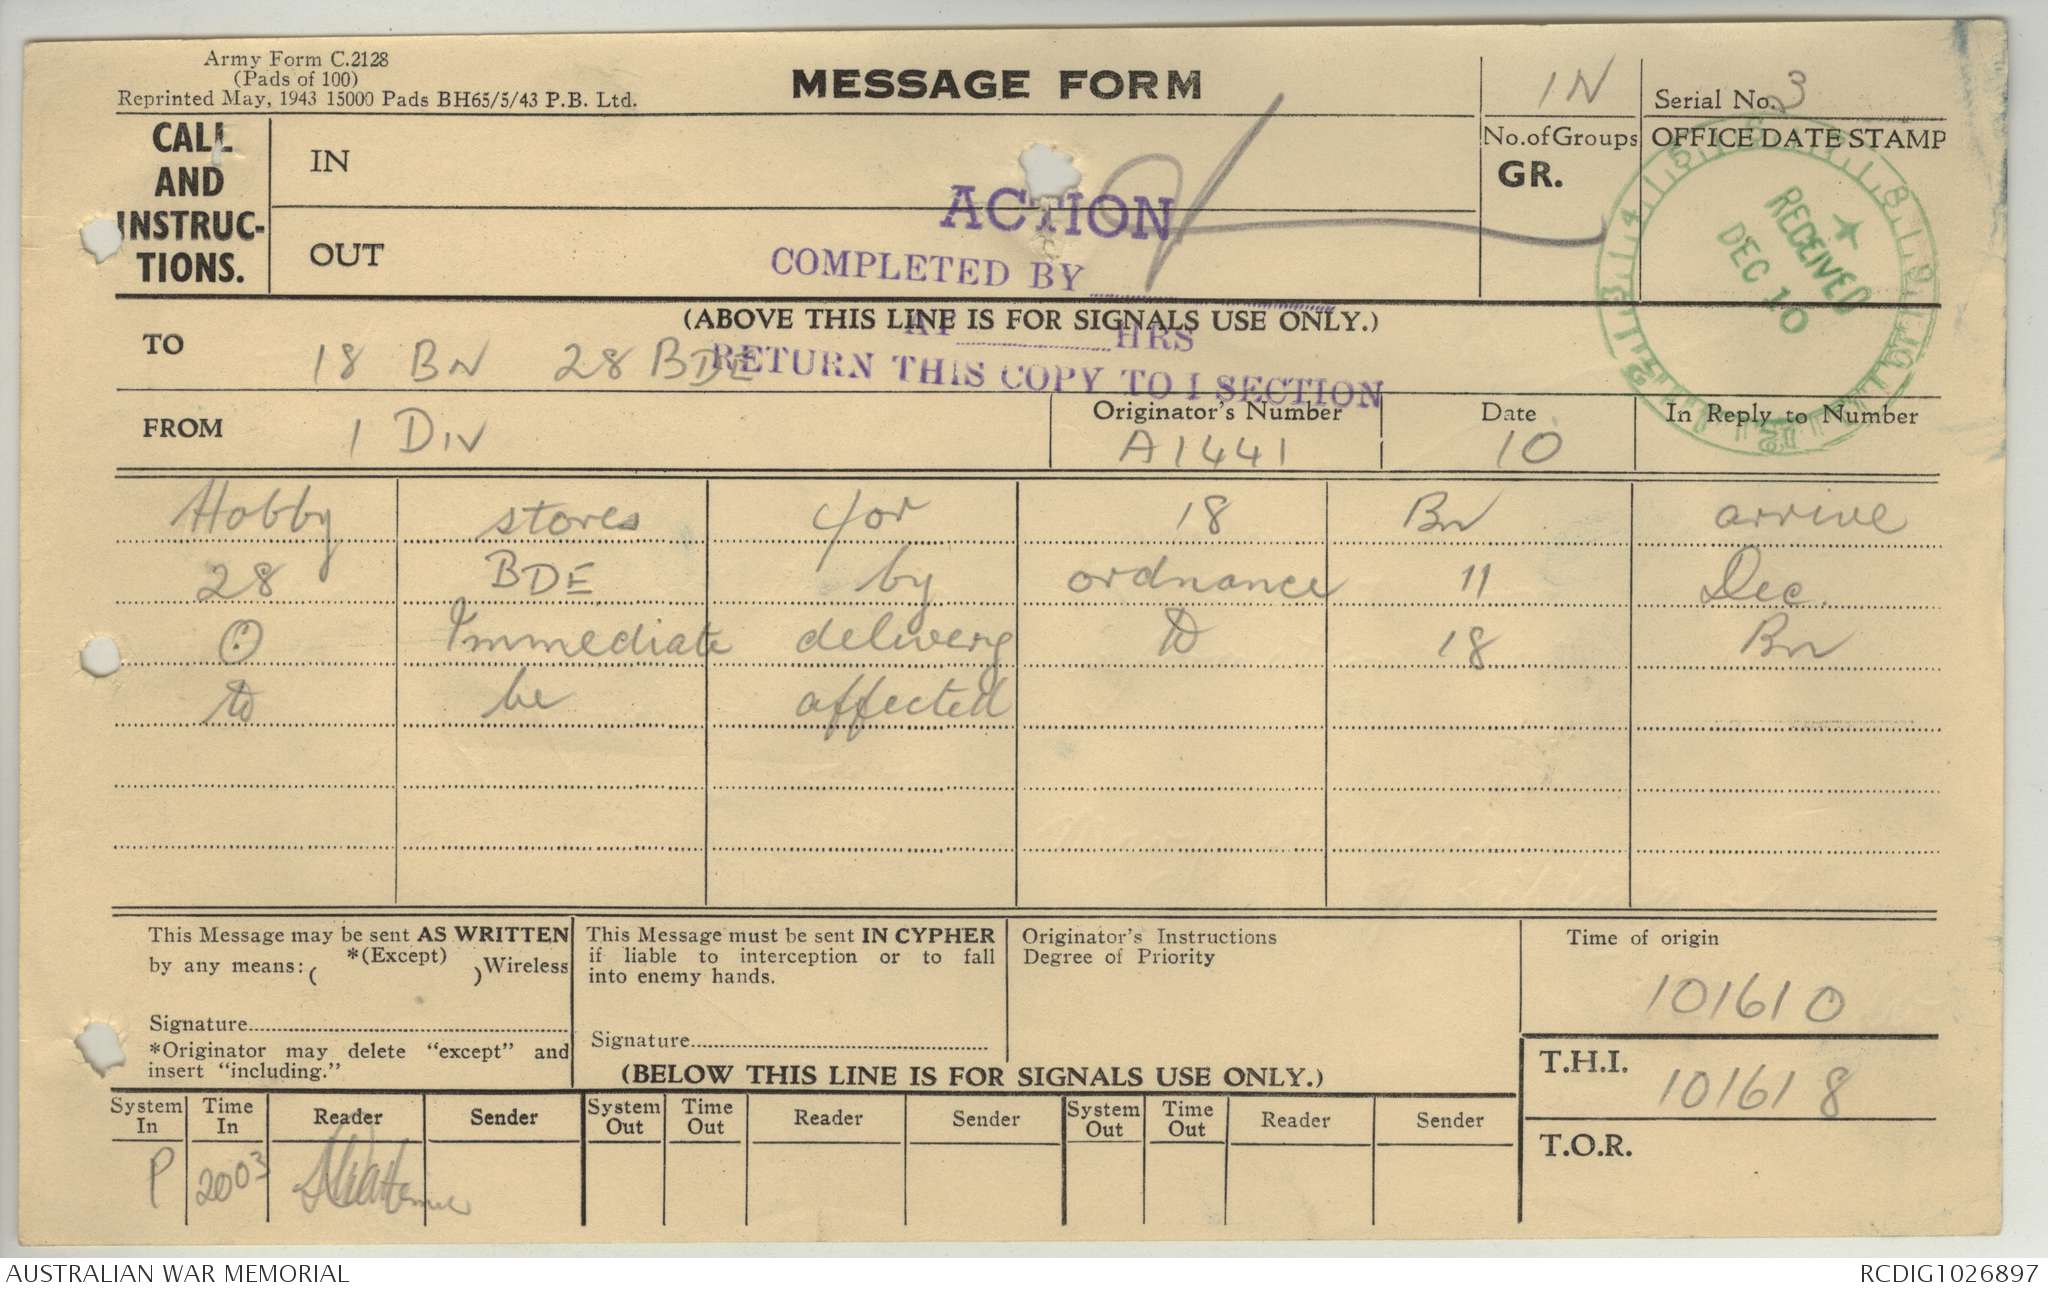 Army Form C.2128
(Pads of 100)
Reprinted May, 1943 15000 Pads BH65/5/43 P.B. Ltd.
MESSAGE FORM
IN
Serial No. 3
CALL
AND
INSTRUC-
TIONS.
IN
OUT
No. of Groups
GR.
OFFICE DATE STAMP
RECEIVED
DEC 10
ACTION
COMPLETED BY
AT HRS
RETURN THIS COPY TO I SECTION
(ABOVE THIS LINE IS FOR SIGNALS USE ONLY.)
TO 18 BN 28 BDE
FROM 1 DIV
Originator's Number A1441
Date 10
In Reply to Number
Hobby stores for 18 Bn arrive
28 BDE by ordnance 11 Dec.
O Immediate delivery to 18 Bn
to be affected
This Message may be sent AS WRITTEN
by any means: ( *(Except) ) Wireless
Signature
*Originator may delete "except" and
insert "including."
This Message must be sent IN CYPHER
if liable to interception or to fall
into enemy hands.
Signature
Originator's Instructions
Degree of Priority
Time of origin
101610
T.H.I.
101618
T.O.R.
(BELOW THIS LINE IS FOR SIGNALS USE ONLY.)
System In Time In Reader Sender System Out Time Out Reader Sender System Out Time Out Reader Sender
P 2003
AUSTRALIAN WAR MEMORIAL RCDIG1026897